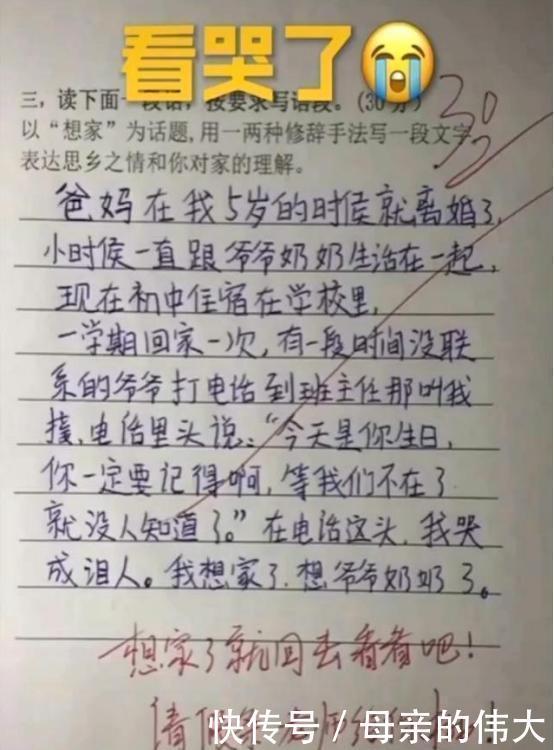 看哭了
三，读下面一段话，按要求写话段。(30分)
30
以“想家”为话题,用一两种修辞手法写一段文字
表达思乡之情和你对家的理解。
爸妈在我5岁的时侯就离婚了,
小时侯一直跟爷爷奶奶生活在一起,
现在初中住宿在学校里,
一学期回家一次,有一段时间没联
系的爷爷打电话到班主任那叫我
接,电话里头说:“今天是你生日,
你一定要记得啊,等我们不在了
就没人知道了。”在电话这头,我哭
成泪人。我想家了,想爷爷奶奶了。
想家了就回去看看吧!
请假
快传号 / 母亲的伟大